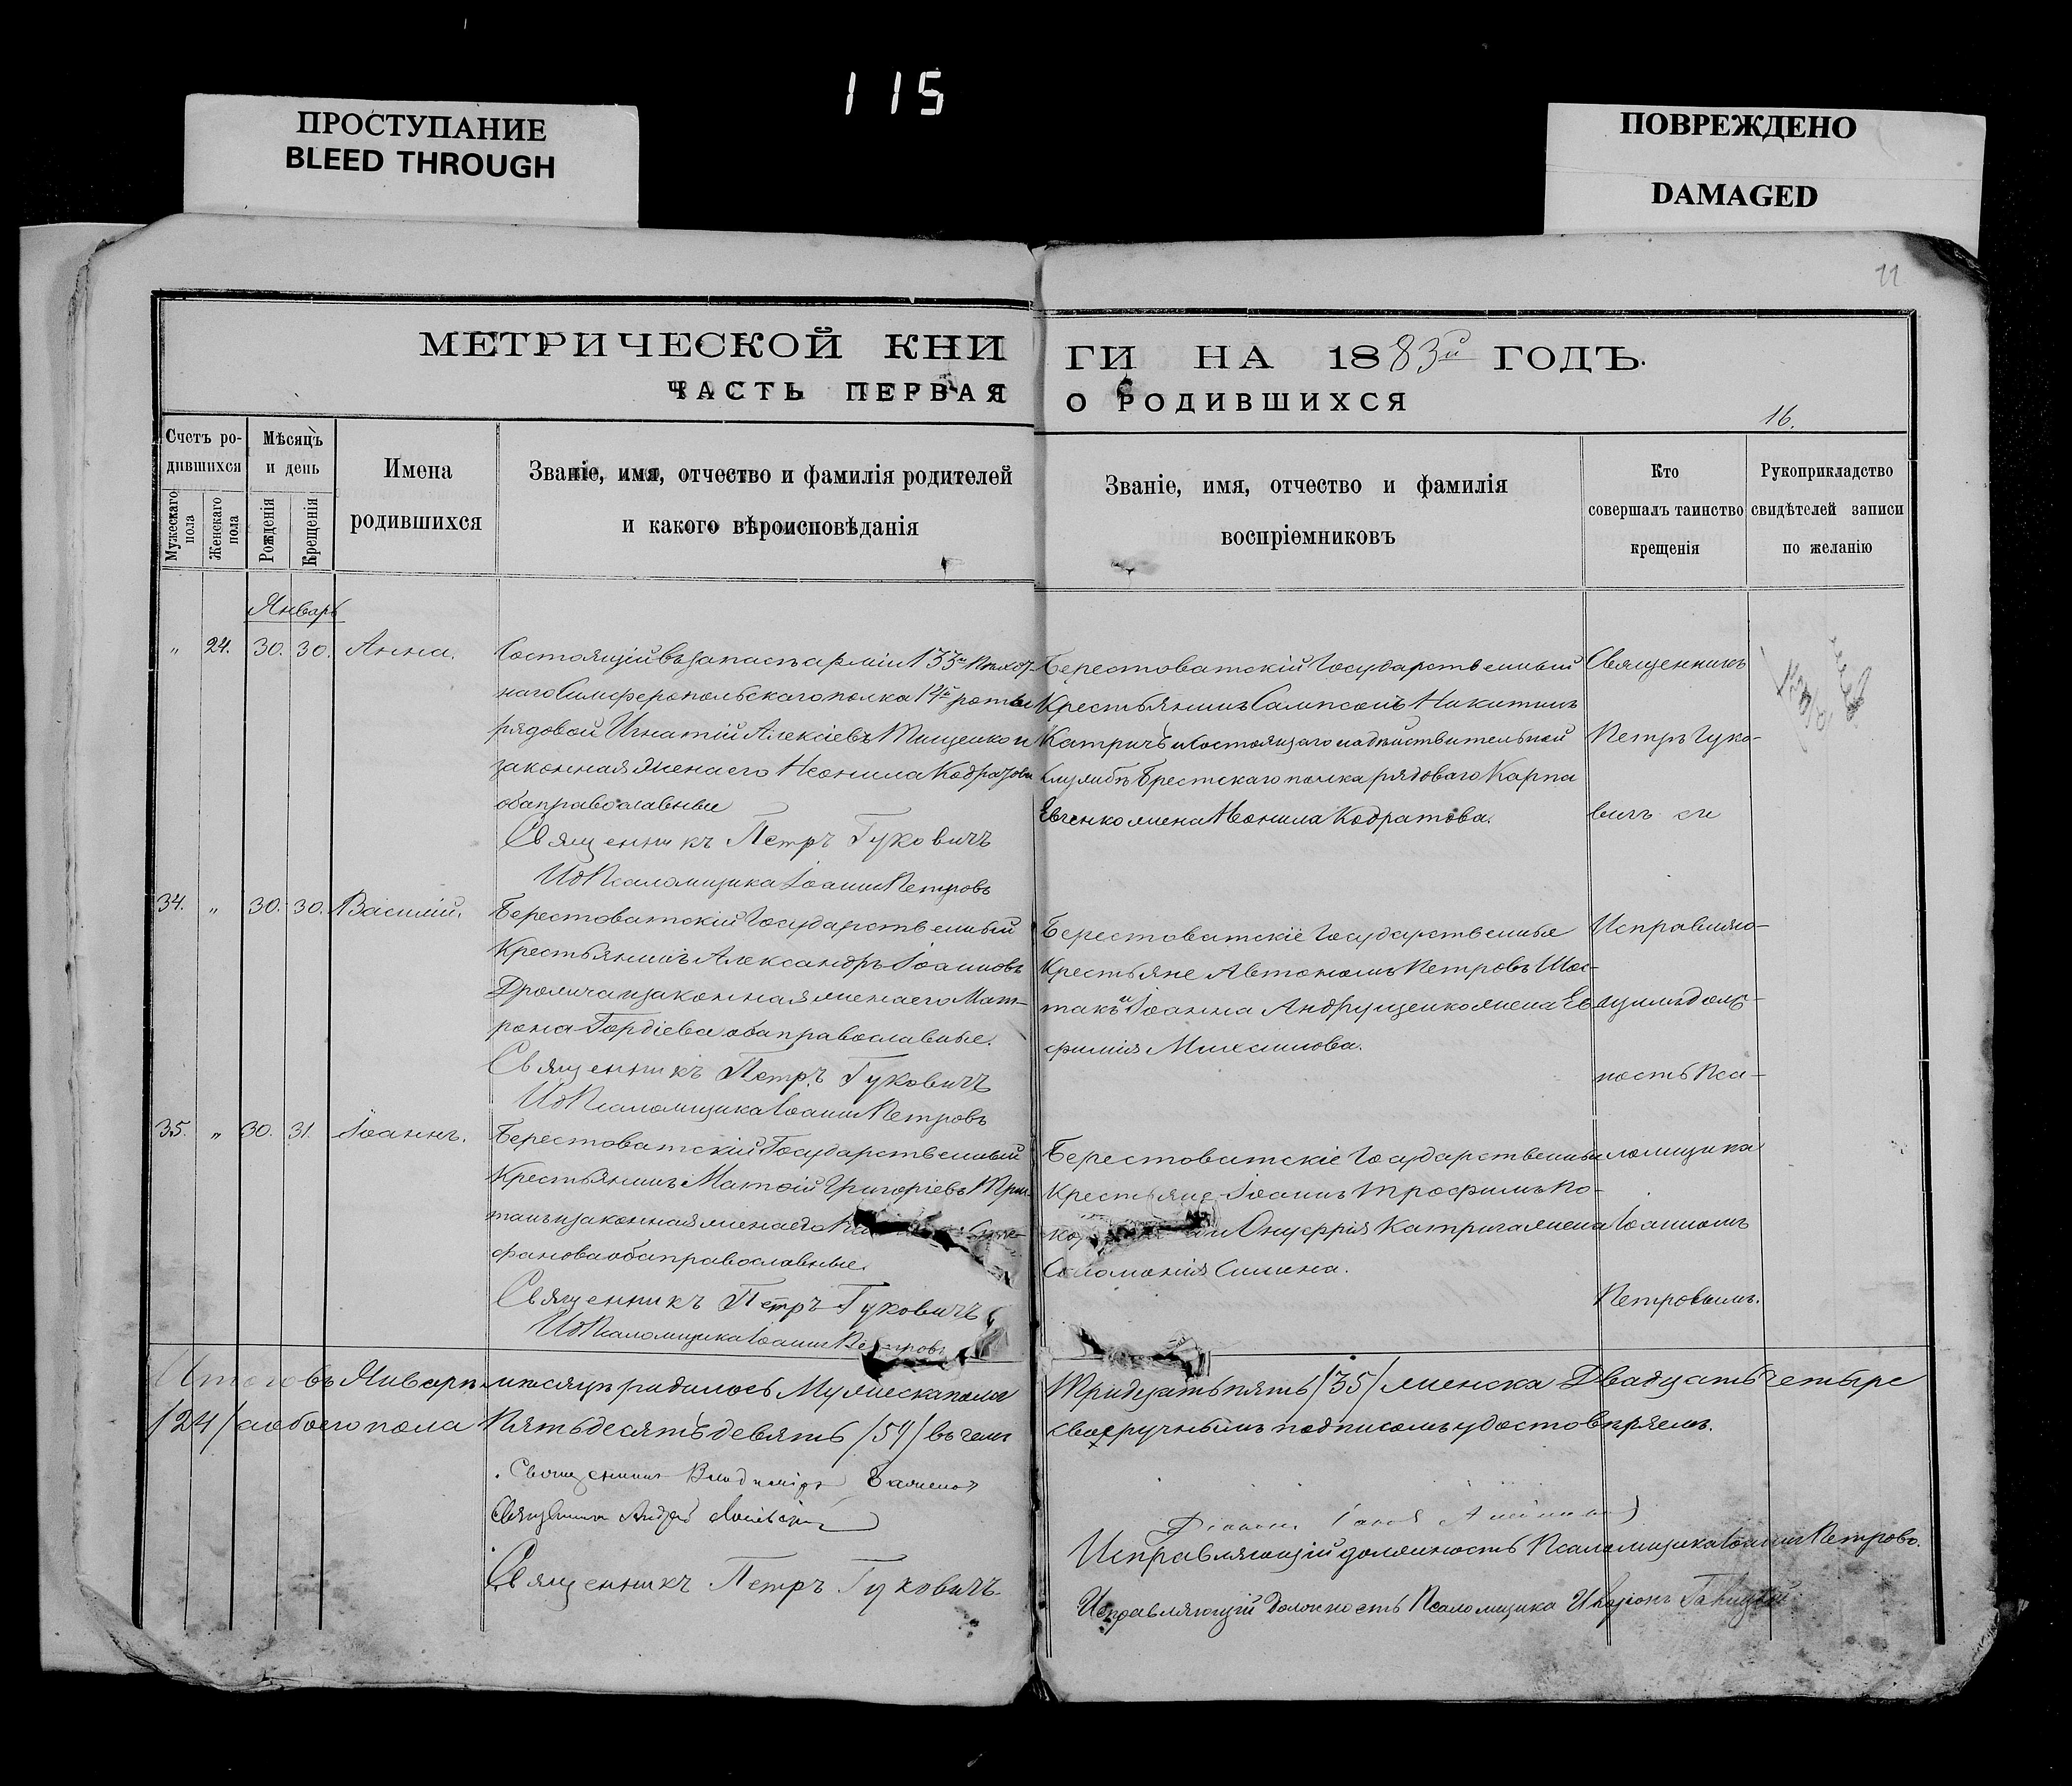 115
ПРОСТУПАНИЕ
BLEED THROUGH
ПОВРЕЖДЕНО
DAMAGED
11
МЕТРИЧЕСКОЙ КНИ
ГИ НА 1883й ГОДЪ.
ЧАСТЬ ПЕРВАЯ
О РОДИВШИХСЯ
16.
Счетъ ро-
дившихся
Мужескаго
пола
Женскаго
пола
Мѣсяцъ
и день
Рожденія
Крещенія
Имена
родившихся
Званіе, имя, отчество и фамилія родителей
и какого вѣроисповѣданія
Званіе, имя, отчество и фамилія
воспріемниковъ
Кто
совершалъ таинство
крещенія
Рукоприкладство
свидѣтелей записи
по желанію
Январь
" 24. 30. 30. Анна.
Состоящій въ запасъ арміи 133го Пѣхот-
наго Симферопольскаго полка 12й роты
рядовой Игнатій Алексіевъ Тищенко и
законная жена его Неонила
оба православные
Священникъ Петръ Гуковичъ
ИД Псаломщика Іоаннъ Петровъ
Берестоватскій Государственный
Крестьянинъ Сампсонъ Никитинъ
Катричъ и состоящаго на дѣйствительной
службѣ Брестскаго полка рядоваго Карпа
Евченко жена Неонила Кодратова.
Священникъ
Петръ Гуко-
вичъ
34. " 30. 30. Василій.
Берестоватскій Государственный
Крестьянинъ Александръ Іоанновъ
законная жена его Мат-
рона Гордіева оба православные.
Священникъ Петръ Гуковичъ
ИД Псаломщика Іоаннъ Петровъ
Берестоватскіе Государственные
Крестьяне Автономъ Петровъ Шос-
такъ и Іоанна Андрущенко жена Ев
фимія
Исправляю-
щимъ долж-
ность Пса-
35. " 30. 31. Іоаннъ.
Берестоватскій Государственный
Крестьянинъ Матѳій Григоріевъ
законная жена его
фанова оба православные.
Священникъ Петръ Гуковичъ
ИД Псаломщика Іоаннъ Петровъ
Берестоватскіе Государственные
Крестьяне Іоаннъ Трофимъ
и Онуфрія Катрича жена
Соломонія Силина.
ломщика
Іоанномъ
Петровымъ.
Итого въ Январѣ мѣсяцѣ родилось Мужеска пола
Тридцать пять /35/ женска Двадцать четыре
/24/ а обоего пола Пятьдесятъ девять /59/ въ чемъ
своеручнымъ подписомъ удостовѣряемъ.
Священникъ Владиміръ
Священникъ Андрей
Священникъ Петръ Гуковичъ
Исправляющій должность Псаломщика Іоаннъ Петровъ.
Исправляющій должность Псаломщика